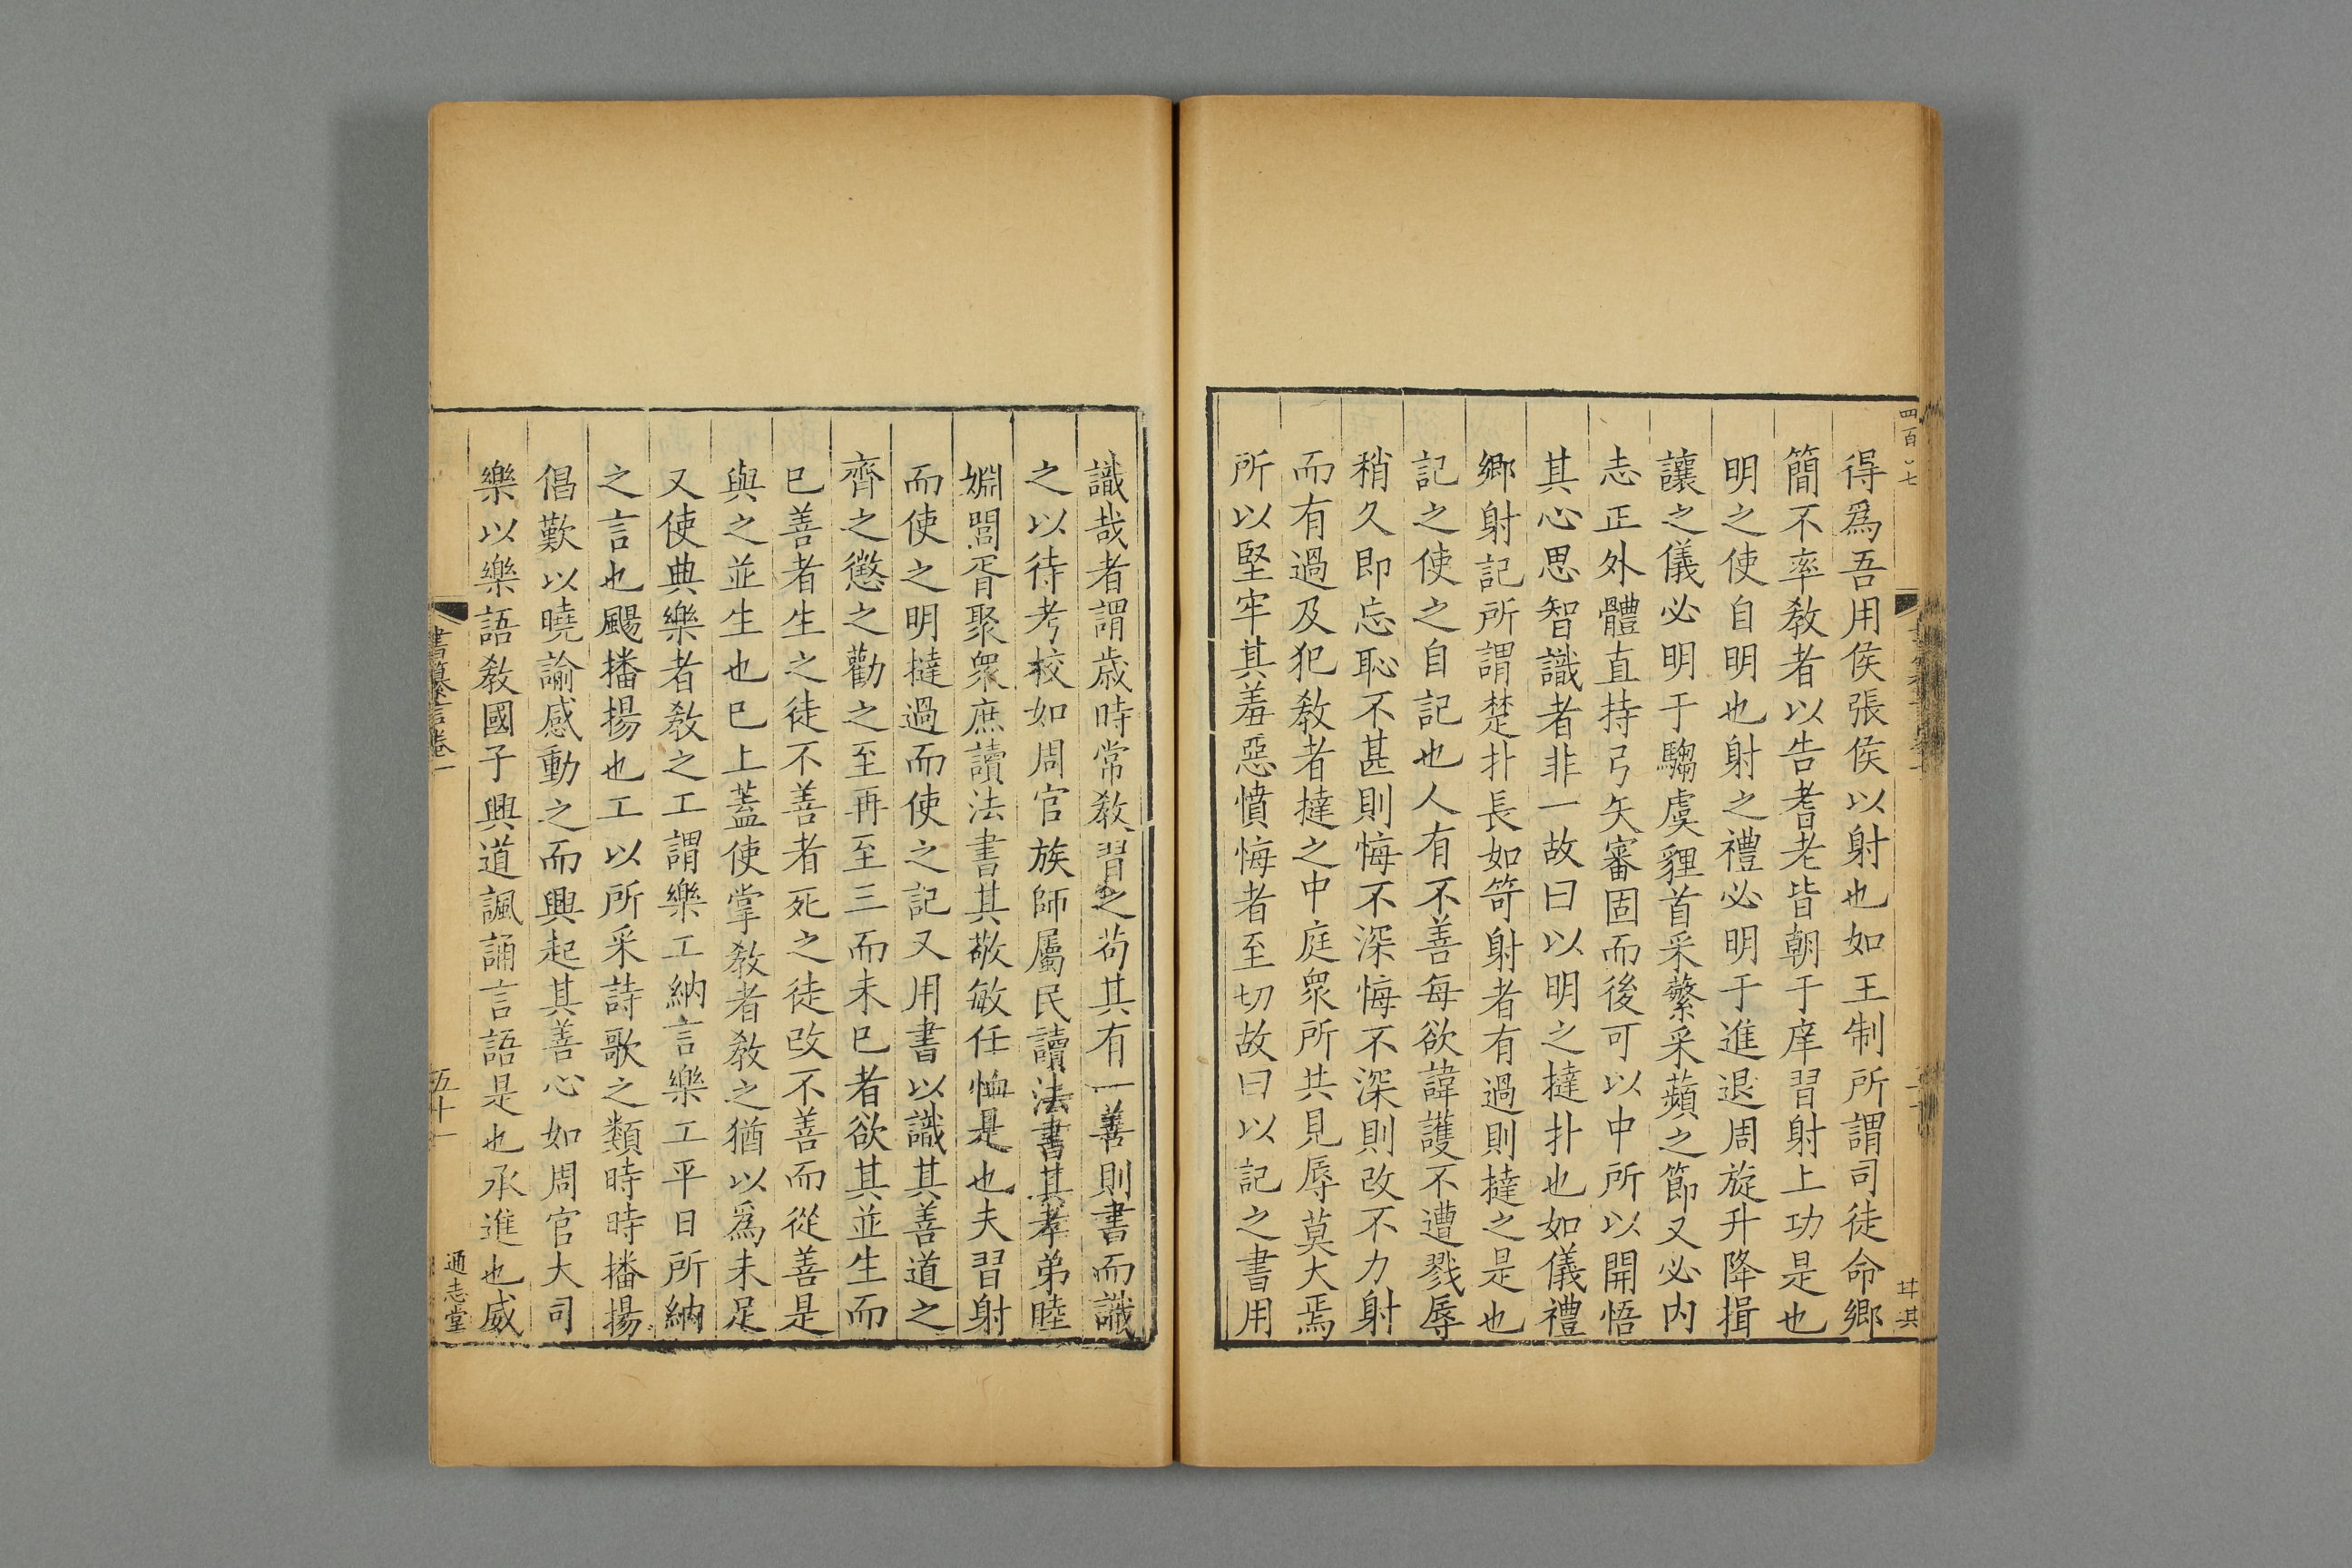 四百七
得爲吾用侯張侯以射也如王制所謂司徒命鄉
簡不率敎者以告耆老皆朝于庠習射上功是也
明之使自明也射之禮必明于進退周旋升降揖
讓之儀必明于騶虞貍首采蘩采蘋之節又必内
志正外體直持弓矢審固而後可以中所以開悟
其心思智識者非一故曰以明之撻扑也如儀禮
鄉射記所謂楚扑長如笴射者有過則撻之是也
記之使之自記也人有不善每欲諱護不遭戮辱
稍久即忘恥不甚則悔不深悔不深則改不力射
而有過及犯敎者撻之中庭眾所共見辱莫大焉
所以堅牢其羞惡憤悔者至切故曰以記之書用
識哉者謂歳時常敎習之苟其有一善則書而識
之以待考校如周官族師屬民讀法書其孝弟睦
婣閭胥聚眾庶讀法書其敬敏任恤是也夫習射
而使之明撻過而使之記又用書以識其善道之
齊之懲之勸之至再至三而未已者欲其並生而
已善者生之徒不善者死之徒改不善而從善是
與之並生也已上蓋使掌敎者敎之猶以爲未足
又使典樂者敎之工謂樂工納言樂工平日所納
之言也颺播揚也工以所采詩歌之類時時播揚
倡歎以曉諭感動之而興起其善心如周官大司
樂以樂語敎國子興道諷誦言語是也承進也威
書纂言卷一
五十一
通志堂